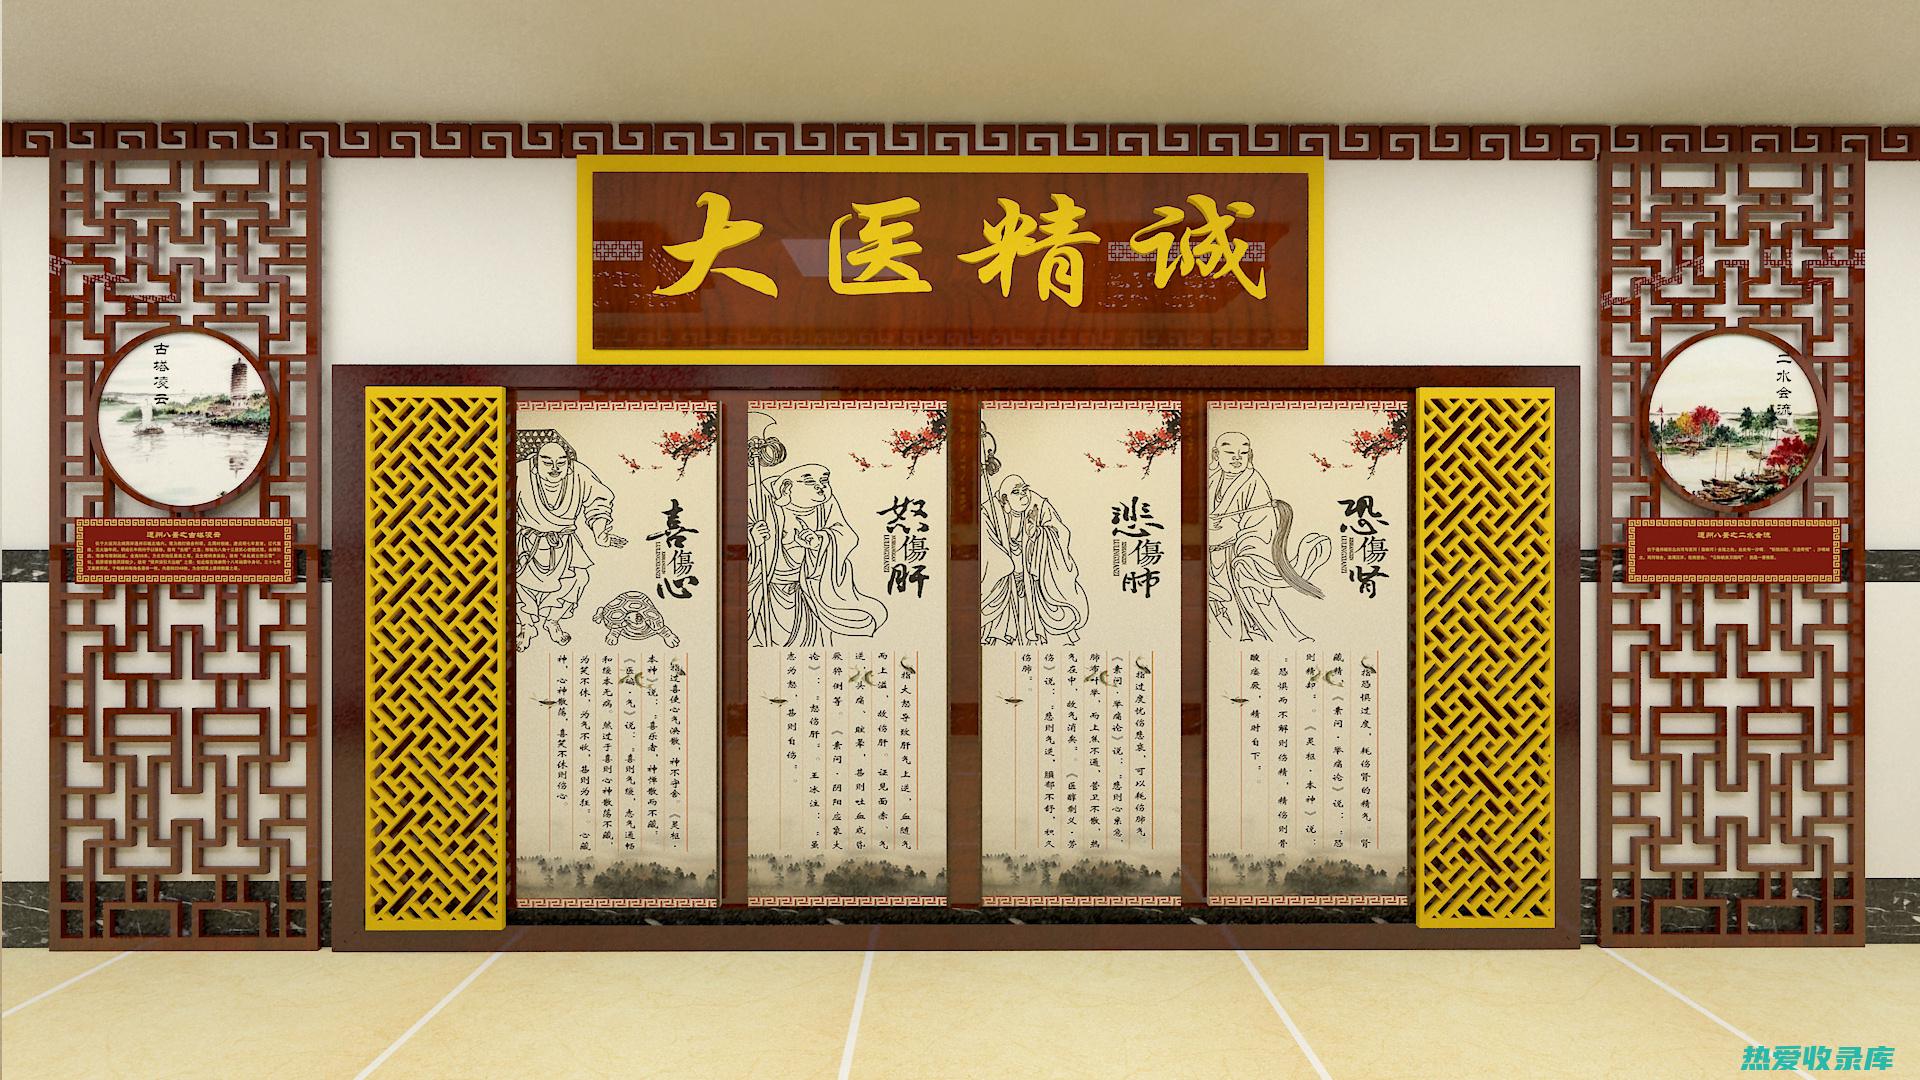 大医精诚
古塔凌云
通州八景之古塔凌云
喜傷心
指过喜使心气涣散,神不守舍。《灵枢·
本神》说:“喜乐者,神惮散而不藏;
《医醇·气》说:“喜则气缓,志气通畅
和缓本无病。然过于喜则心神散荡不藏,
为笑不休,为气不收,甚则为狂。心藏
神,心神散荡,喜笑不休则伤心。
怒傷肝
指大怒导致肝气上逆,血随气
而上溢,故伤肝。证见面赤、气
逆、头痛、眩晕,甚则吐血或昏
厥卒倒等。《素问·阴阳应象大
论》:“怒伤肝”。王冰注:“虽
志为怒,甚则自伤”。
悲傷肺
指过度忧伤悲哀,可以耗伤肺气
《素问·举痛论》说:“悲则心系急,
肺布叶举,而上焦不通,营卫不散,热
气在中,故气消矣。《医醇剩义·劳
伤》说:“悲则气逆,膹郁不舒,积久
伤肺”。
恐傷肾
指恐惧过度,耗伤肾的精气。肾
藏精,《素问·举痛论》说:“恐
则精却”。《灵枢·本神》说:
“恐惧而不解则伤精,精伤则骨
酸痿厥,精时自下”。
二水会流
通州八景之二水会流
热爱收录库